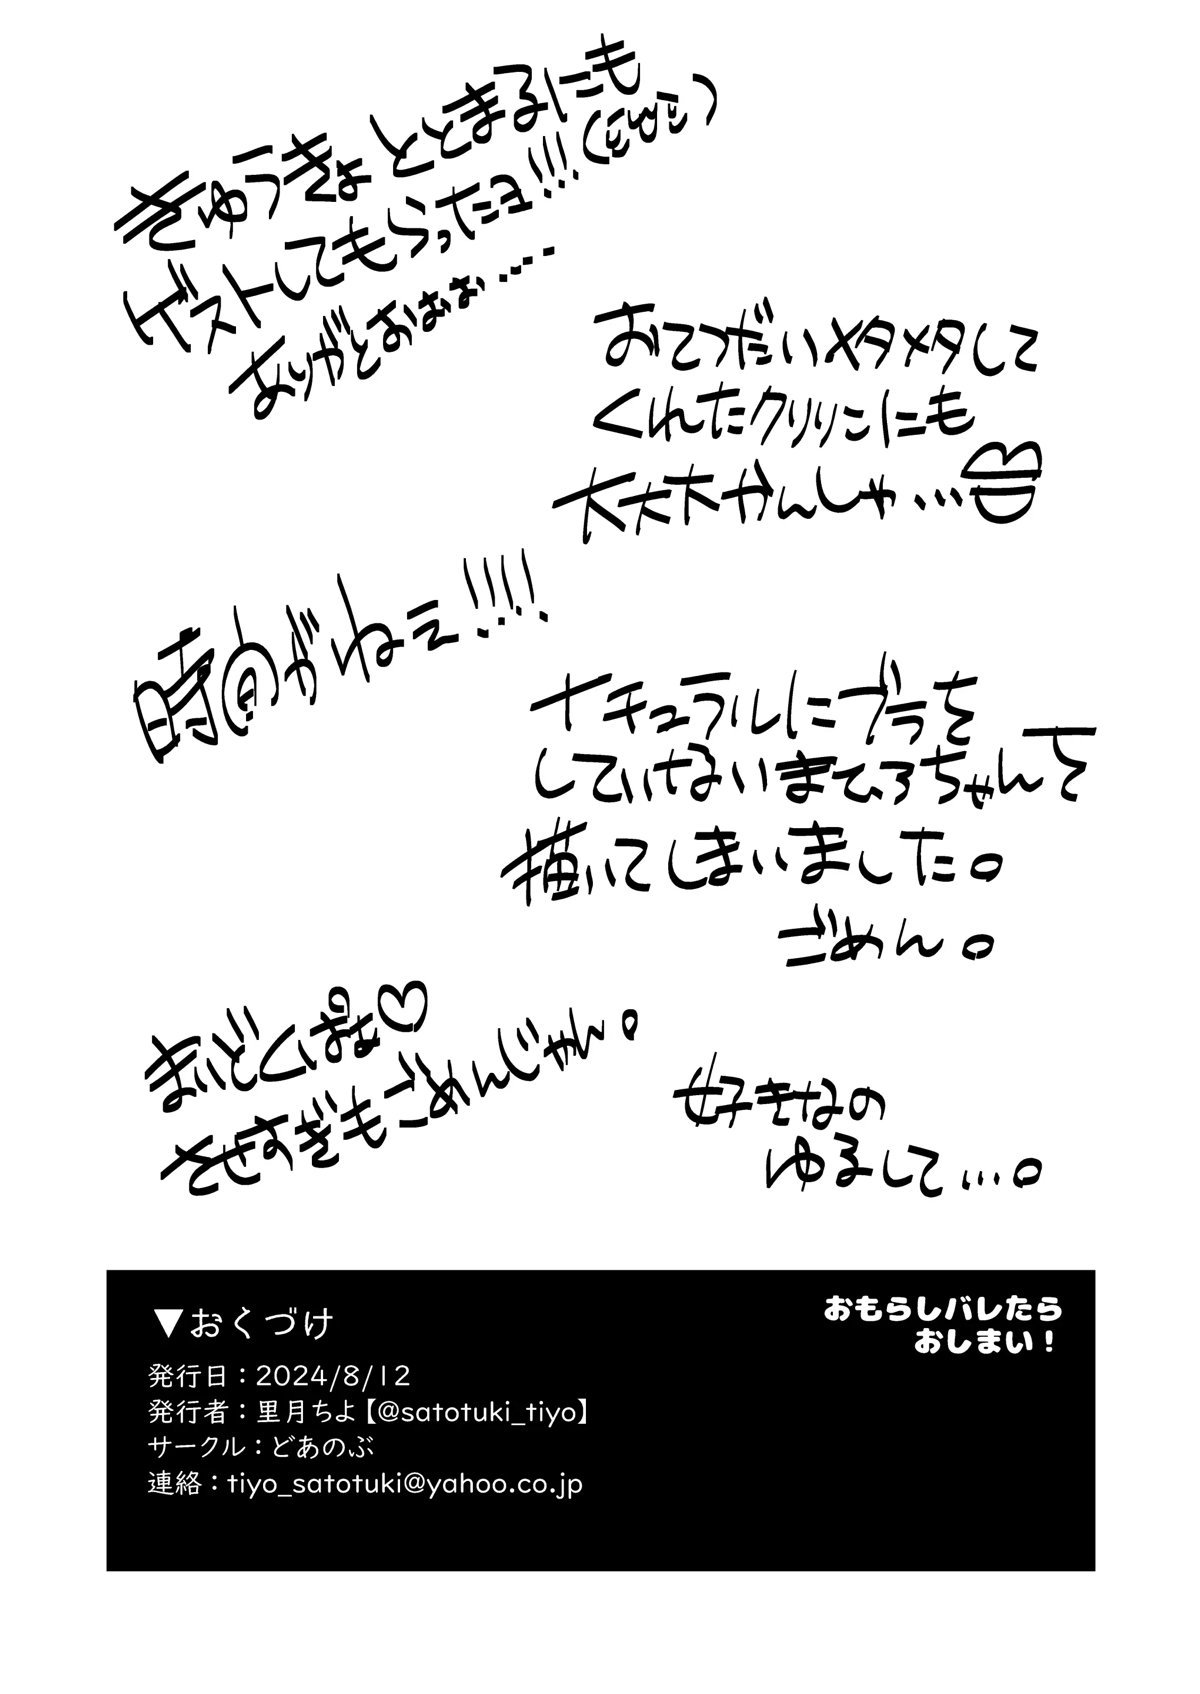 きゅうきょ ととまるにも
ゲストしてもらったヨ!!!
ありがとおぉぉ....
おてつだいメタメタして
くれたクリリンにも
大大大かんしゃ...
時間がねェ!!!!
ナチュラルにブラを
していないまひろちゃんを
描いてしまいました。
ごめん。
まいどくぱぁ♡
させすぎもごめんじゃん。
好きなの
ゆるして...。
▼おくづけ
発行日：2024/8/12
発行者：里月ちよ【@satotuki_tiyo】
サークル：どあのぶ
連絡：tiyo_satotuki@yahoo.co.jp
おもらしバレたら
おしまい！